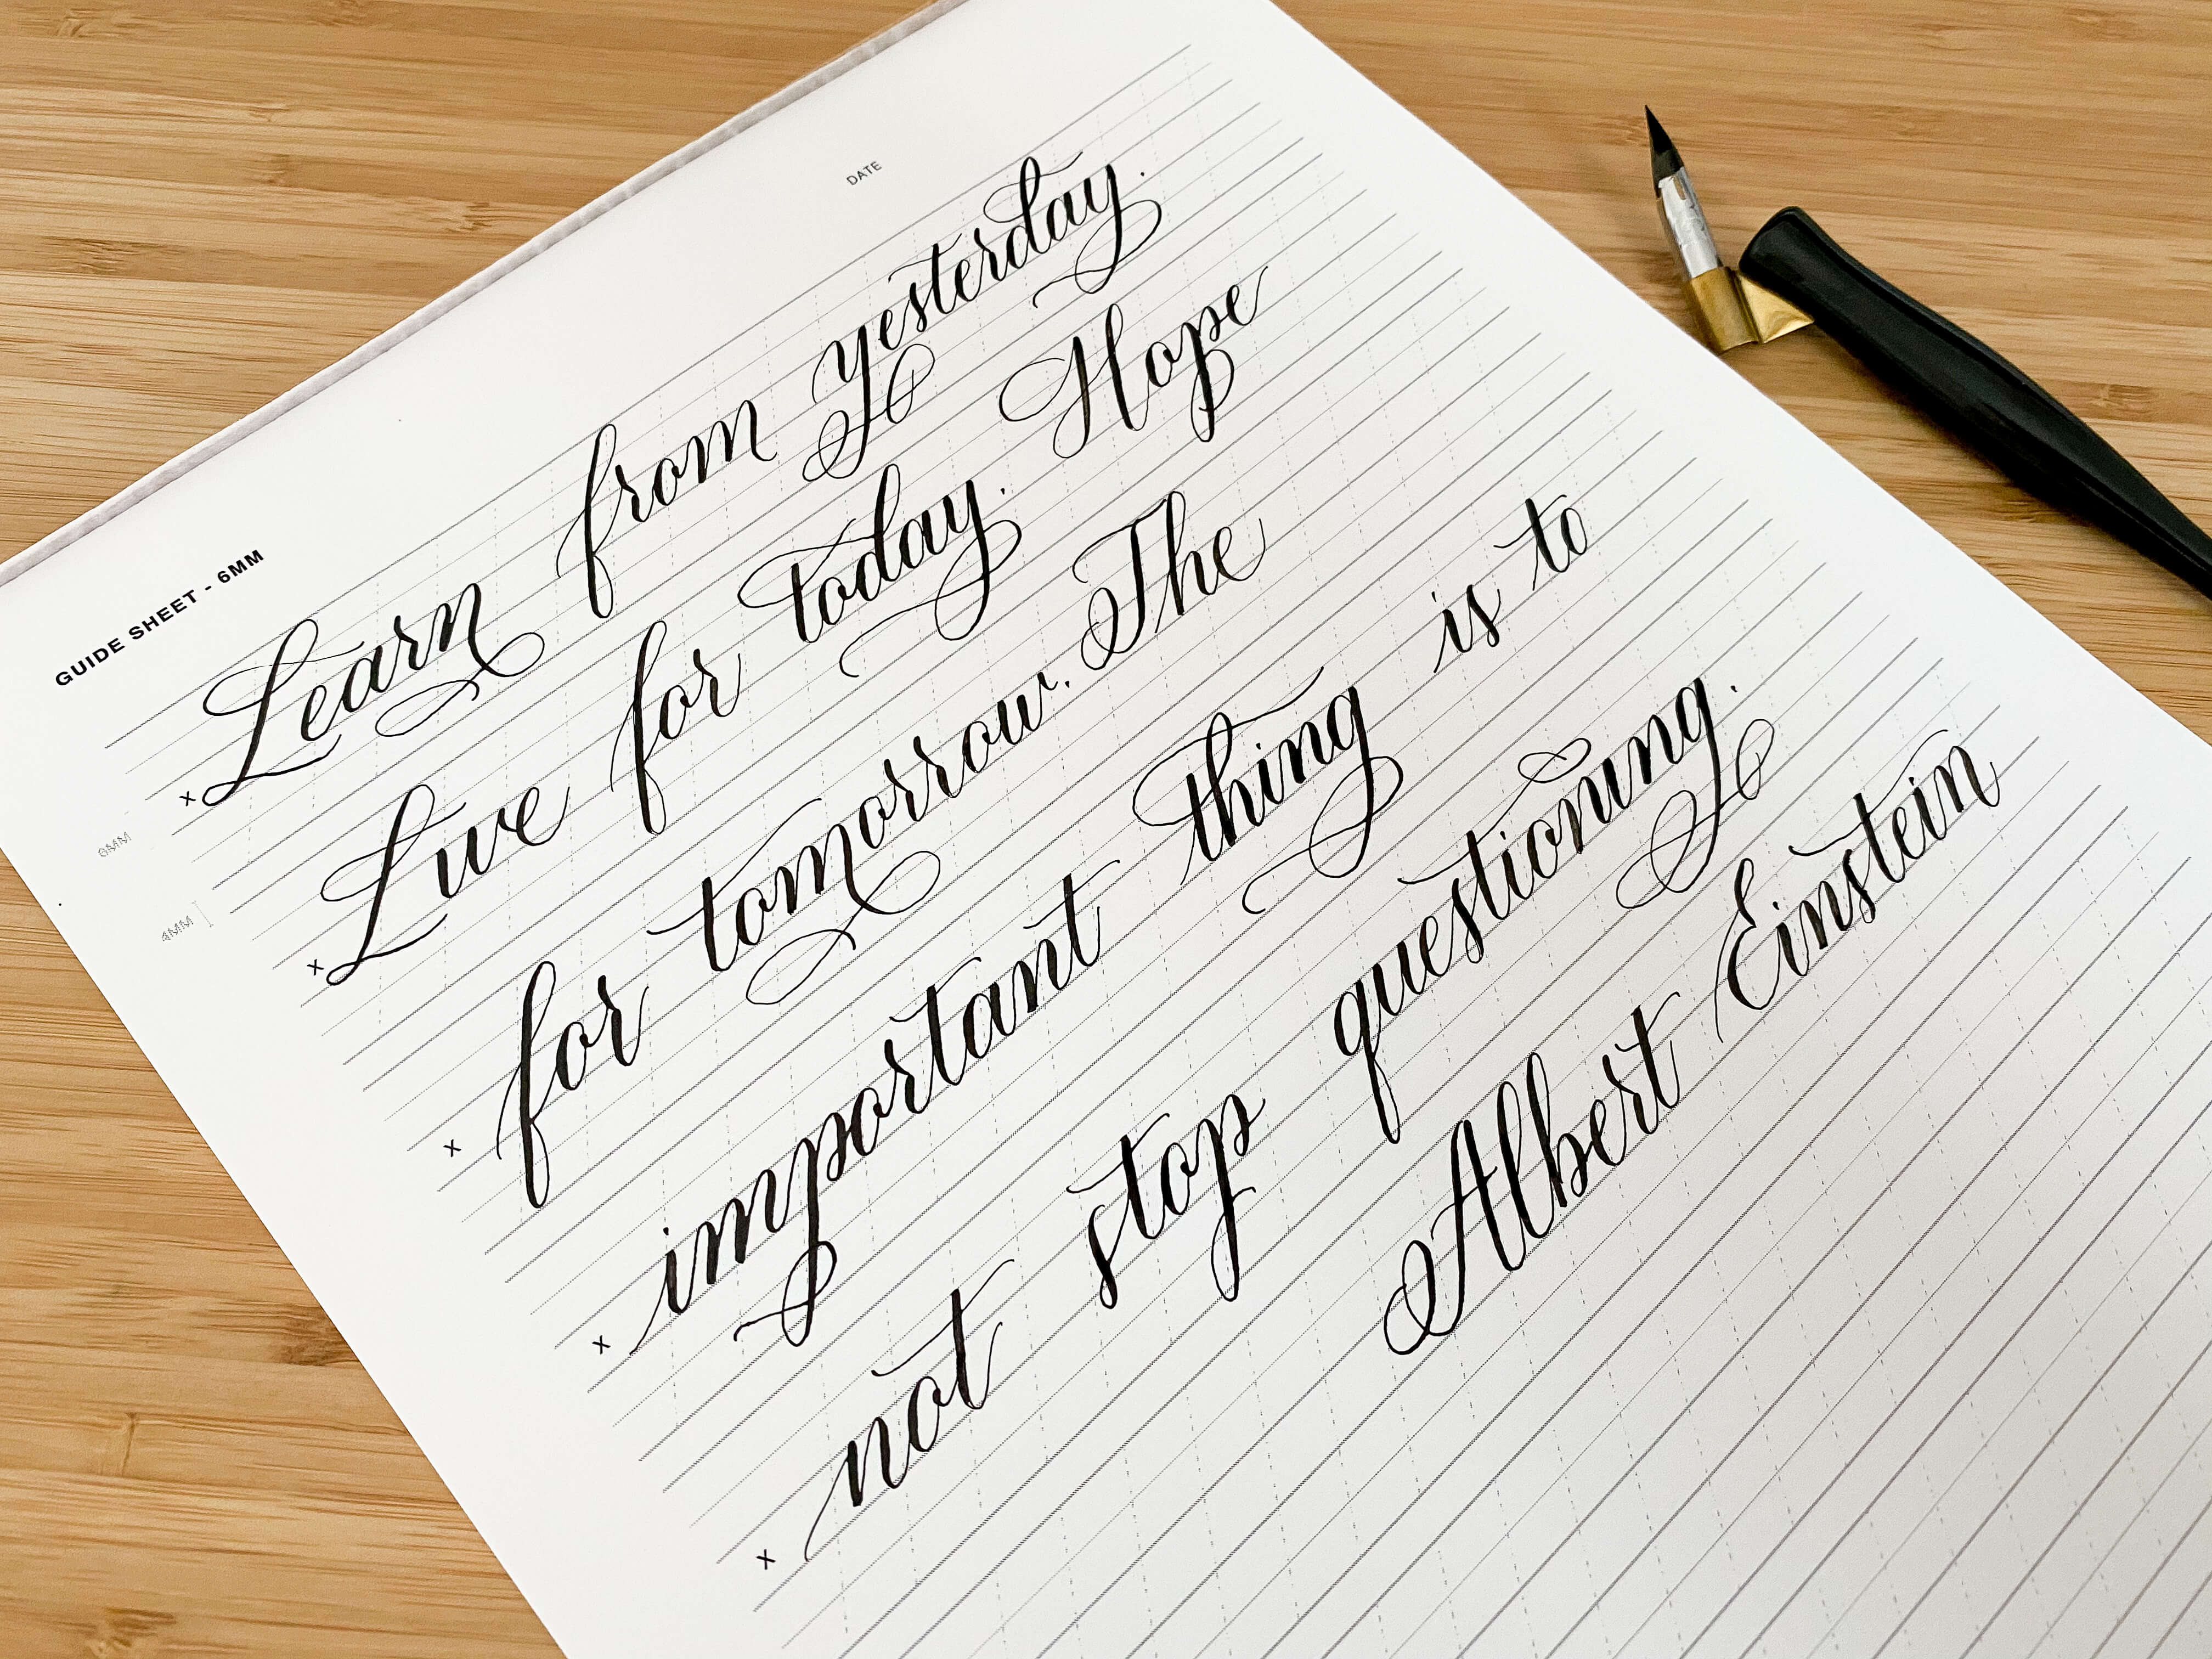 DATE
GUIDE SHEET - 6MM
Learn from yesterday.
Live for today. Hope
6MM
for tomorrow. The
4MM
important thing is to
not stop questioning.
Albert Einstein
x
x
x
x
x